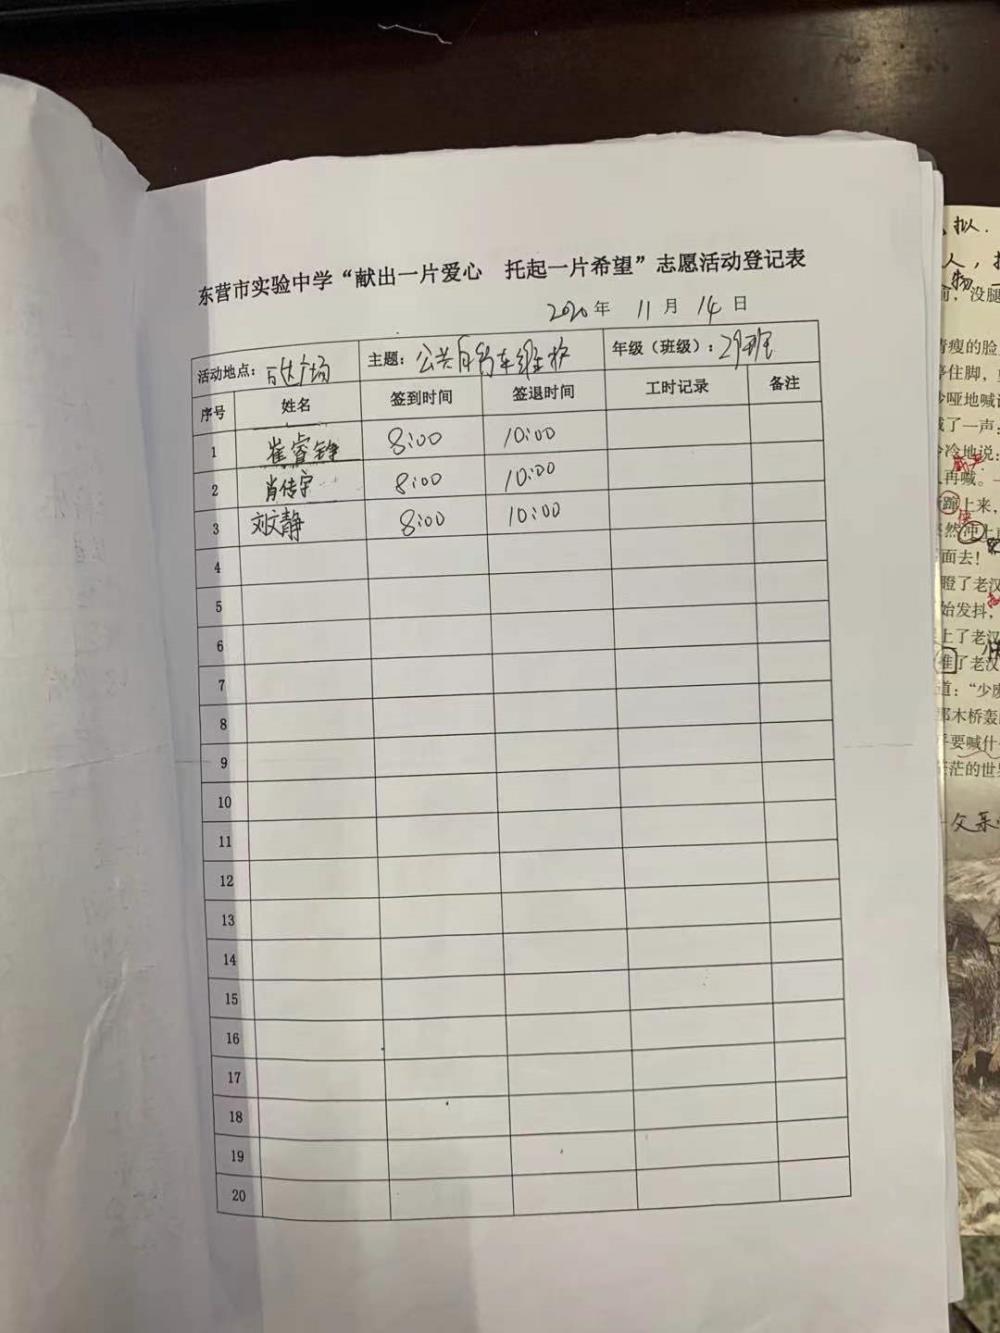 东营市实验中学“献出一片爱心 托起一片希望”志愿活动登记表
2020年 11月 14日
活动地点：万达广场 主题：公共自行车维护 年级（班级）：
序号 姓名 签到时间 签退时间 工时记录 备注
1 崔睿铮 8:00 10:00
2 肖传宇 8:00 10:00
3 刘文静 8:00 10:00
4
5
6
7
8
9
10
11
12
13
14
15
16
17
18
19
20
拟.
人，
物
没腿
青瘦的脸
停住脚，
沙哑地喊
了一声：
冷地说：
再喊。
蹿上来，
然冲上
面去！
瞪了老汉
始发抖，
上了老汉
推了老汉
道：“少废
那木桥轰
乎要喊什
茫茫的世界
父亲